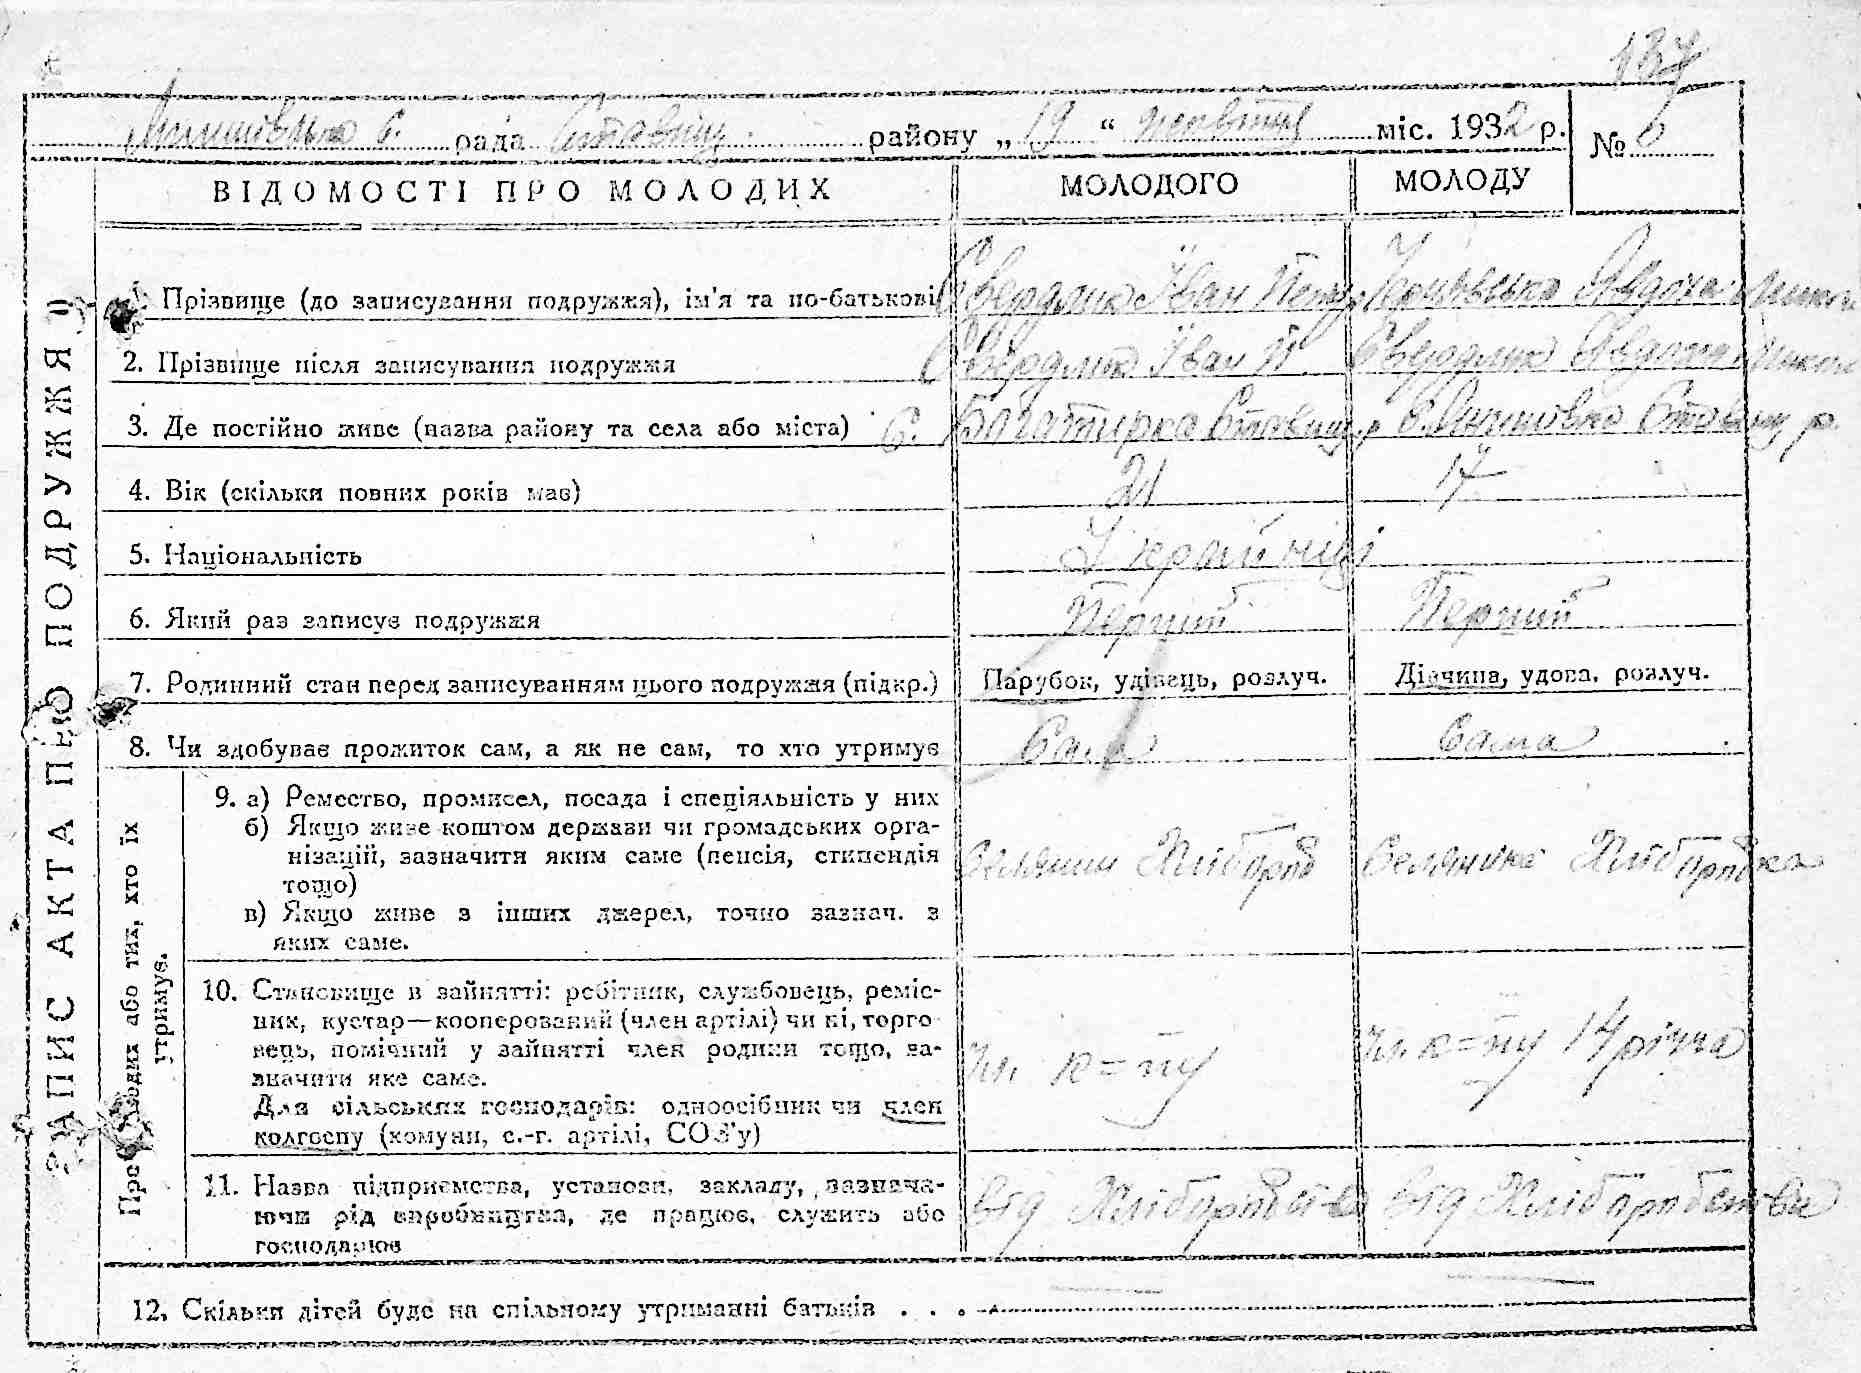 137
рада Ставищ. району „ 19 “ червня міс. 1932 р.
№ 6
ЗАПИС АКТА ПРО ПОДРУЖЖЯ
ВІДОМОСТІ ПРО МОЛОДИХ
МОЛОДОГО
МОЛОДУ
1. Прізвище (до записування подружжя), ім'я та по-батькові
Свердлик Іван Петр.
Явдоха
2. Прізвище після записування подружжя
Свердлик Іван П.
Свердлик Явдоха
3. Де постійно живе (назва району та села або міста)
С. Багатирка Ставищ. р
Ставищ р.
4. Вік (скільки повних років має)
21
17
5. Національність
Українці
6. Який раз записує подружжя
Перший
Перший
7. Родинний стан перед записуванням цього подружжя (підкр.)
Парубок, удівець, розлуч.
Дівчина, удова, розлуч.
8. Чи здобуває прожиток сам, а як не сам, то хто утримує
Сам
Сама
Про молодих або тих, хто їх утримує.
9. а) Ремество, промисел, посада і спеціяльність у них
б) Якщо живе коштом держави чи громадських орга-
нізацій, зазначити яким саме (пенсія, стипендія
тощо)
в) Якщо живе з інших джерел, точно зазнач. з
яких саме.
Селянин Хлібороб
Селянка Хліборобка
10. Становище в зайнятті: робітник, службовець, реміс-
ник, кустар—кооперований (член артілі) чи ні, торго-
вець, помічний у зайнятті член родини тощо, за-
значити яке саме.
Для сільських господарів: одноосібник чи член
колгоспу (комуни, с.-г. артілі, СОЗ'у)
Чл. к=пу
Чл. к=пу 14 річча
11. Назва підприємства, установи, закладу, зазнача-
ючи рід виробництва, де працює, служить або
господарює
від Хліборобства
від Хліборобства
12. Скільки дітей буде на спільному утриманні батьків . . .